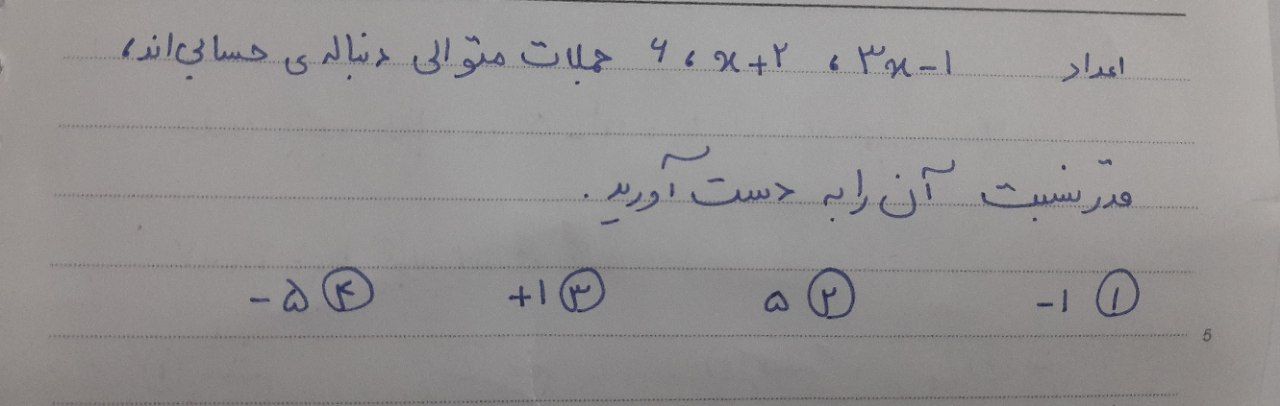 اعداد ۳x-۱ ، x+۲ ، ۶ جملات متوالی دنباله‌ی حسابی‌اند،
قدرنسبت آن را به دست آورید.
① -۱ ② ۵ ③ +۱ ④ -۵
5